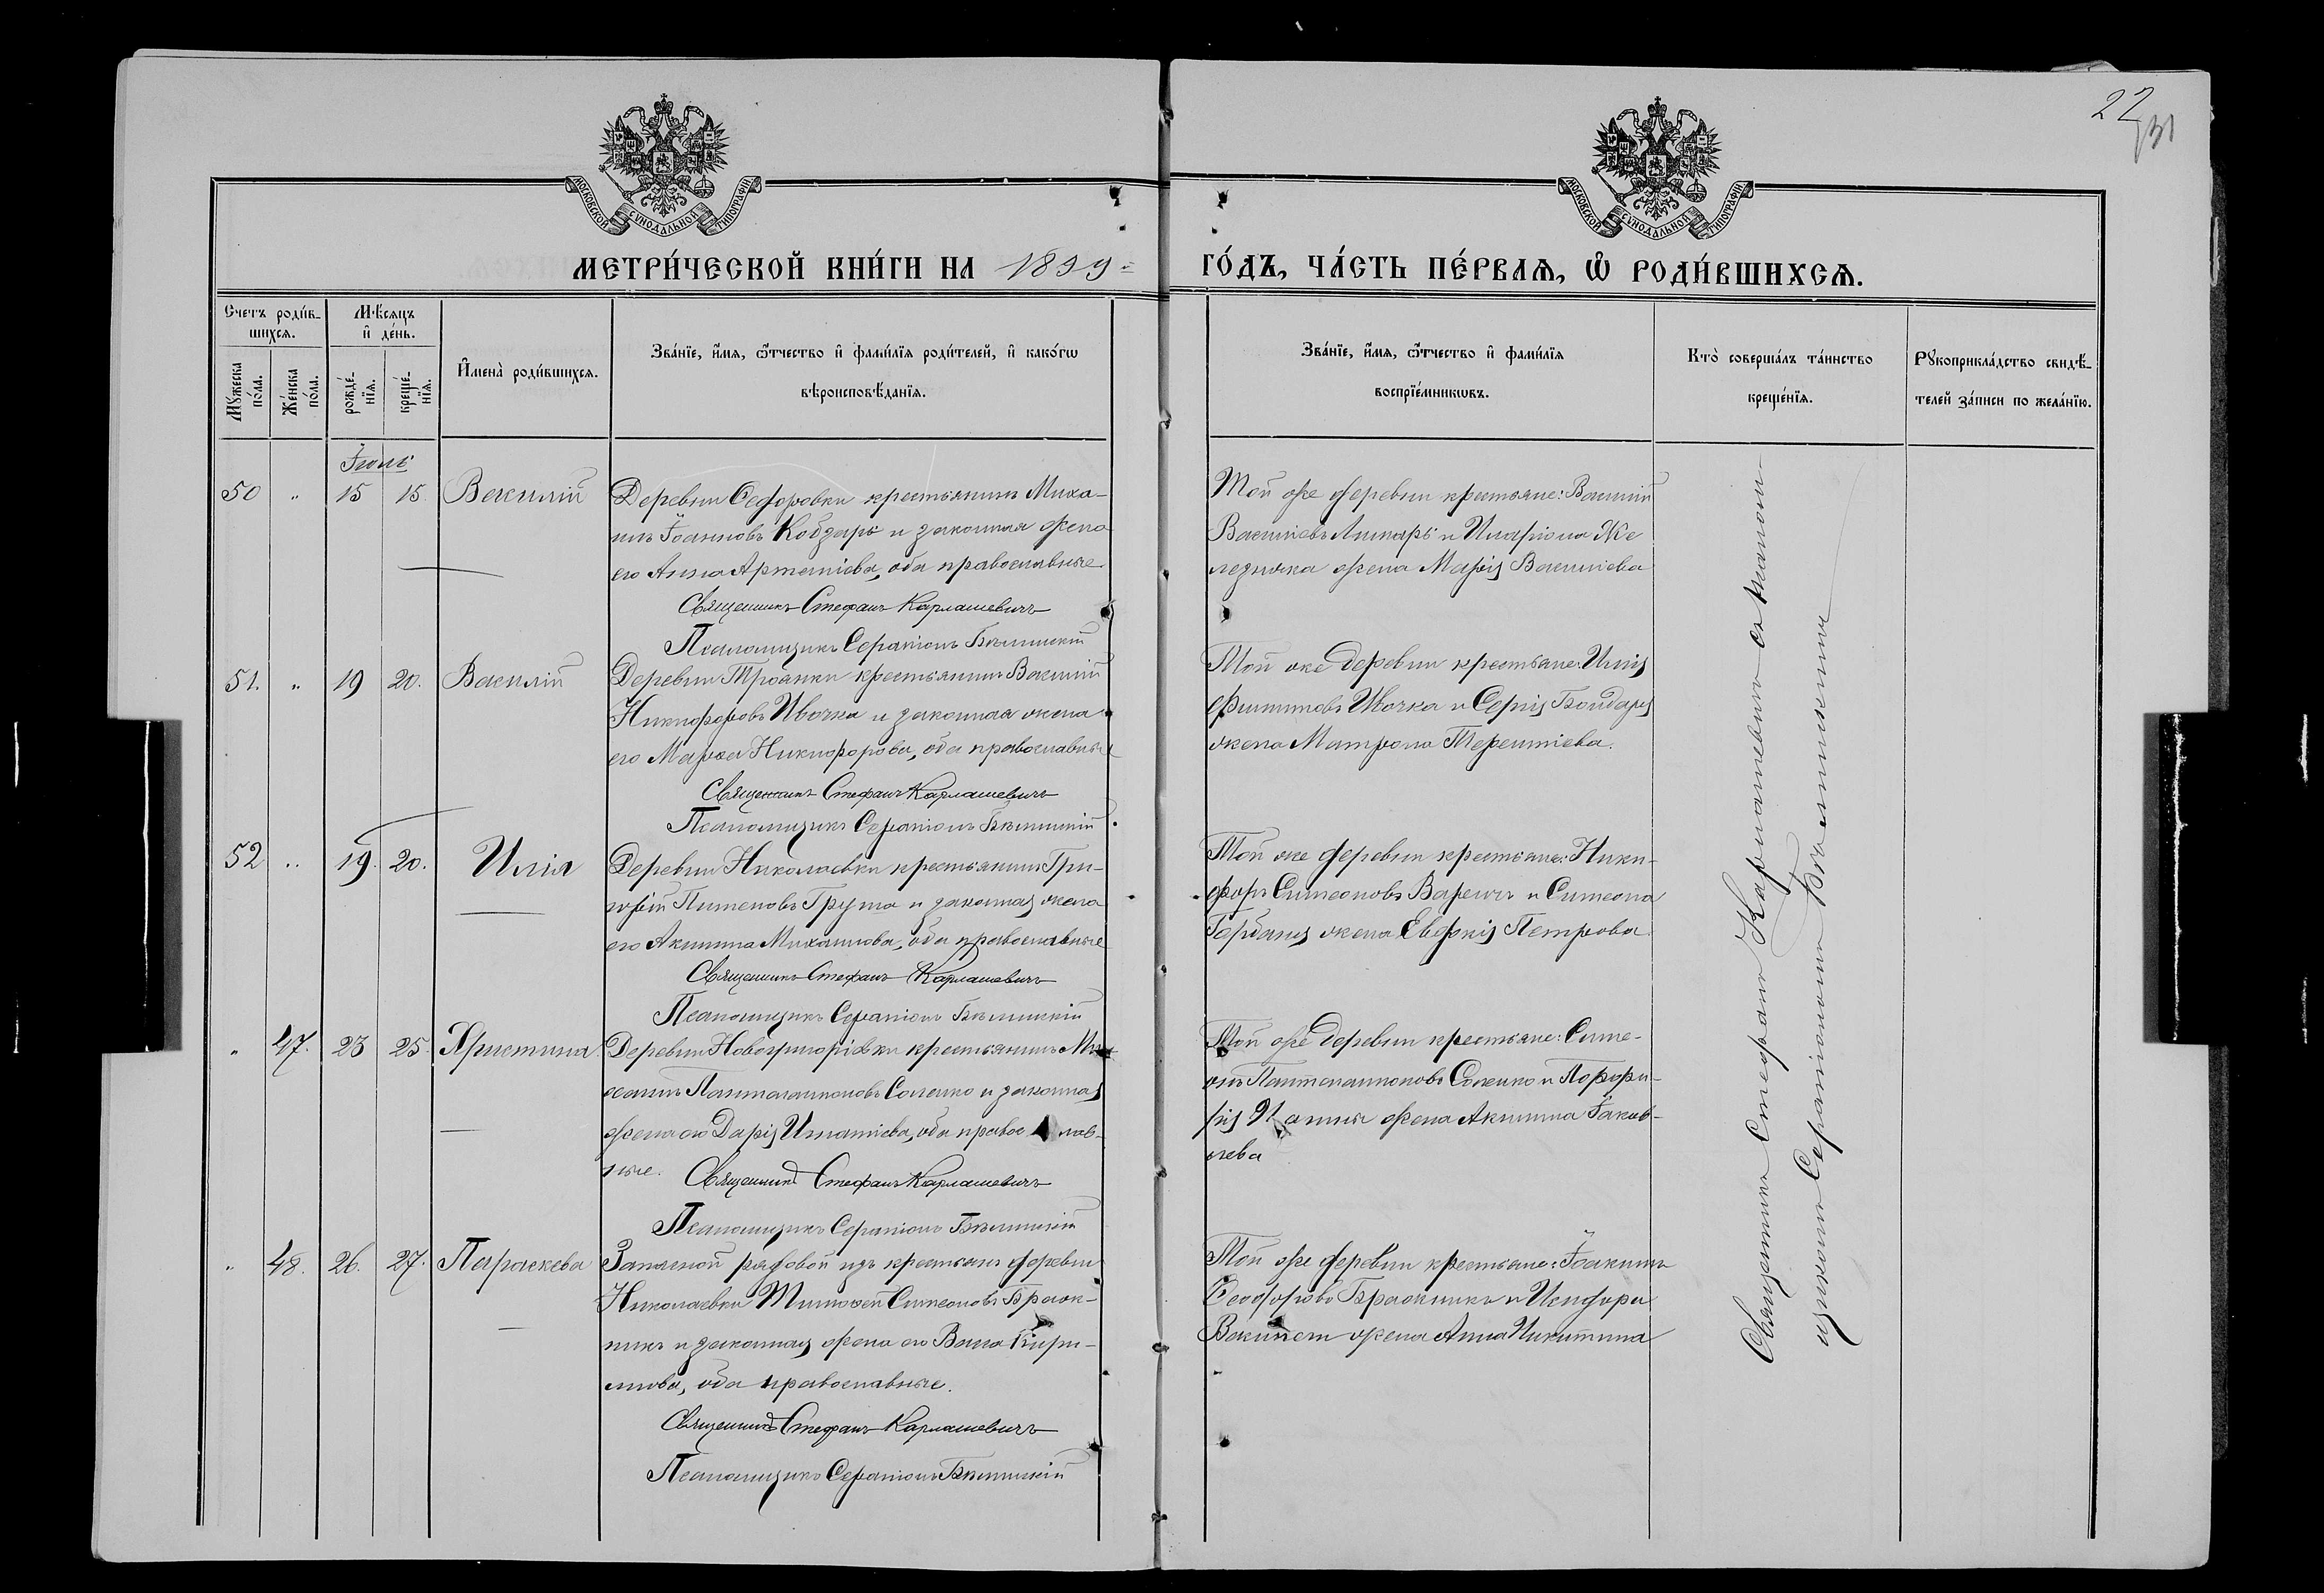 22
31
МОСКОВСКОЙ СѴНОДАЛЬНОЙ ТИПОГРАФІИ
МОСКОВСКОЙ СѴНОДАЛЬНОЙ ТИПОГРАФІИ
МЕТРИ́ЧЕСКОЙ КНИ́ГИ НА 1899
ГО́ДЪ, ЧА́СТЬ ПЕ́РВАѦ, Ѡ҆ РОДИ́ВШИХСѦ.
Счетъ роди́в-
шихсѧ.
Мѣсѧцъ
и҆ де́нь.
Мꙋжеска
по́ла.
Же́нска
по́ла.
рожде́-
нїѧ.
креще́-
нїѧ.
И҆мена̀ роди́вшихсѧ.
Зва́нїе, и҆́мѧ, ѻ҆́тчество и҆ фами́лїѧ роди́телей, и҆ како́гѡ
вѣроисповѣ́данїѧ.
Зва́нїе, и҆́мѧ, ѻ҆́тчество и҆ фами́лїѧ
воспрїе́мникѡвъ.
Кто̀ соверша́лъ та́инство
креще́нїѧ.
Рꙋкоприкла́дство свидѣ́-
телей за́писи по жела́нїю.
Іюль
50 " 15 15. Василій
Деревни Сефоровки крестьянинъ Миха-
илъ Іоанновъ Кобзарь и законная жена
его Анна Артеміева, оба православные.
Священникъ Стефанъ Карпашевичъ
Псаломщикъ Серапіонъ Бѣлинскій
Той же деревни крестьяне: Василій
Василіевъ Лымарь и Иларіона Же
лезняка жена Марія Василіева
51. " 19 20. Василій
Деревни Трoянки крестьянинъ Василій
Никифоровъ Ивочка и законная жена
его Марѳа Никифорова, оба православные
Священникъ Стефанъ Карпашевичъ
Псаломщикъ Серапіонъ Бѣлинскій
Той же деревни крестьяне: Илія
Филиповъ Ивочка и Сергія Бондаря
жена Матрона Терентіева.
52 " 19. 20. Илія
Деревни Николаевки крестьянинъ Гри-
горій Пименовъ Грума и законная жена
его Акилина Михаилова, оба православные
Священникъ Стефанъ Карпашевичъ
Псаломщикъ Серапіонъ Бѣлинскій
Той же деревни крестьяне: Ники-
форъ Симеоновъ Варечъ и Симеона
Горбаня жена Евфимія Петрова.
" 47. 23 25. Христина.
Деревни Новогригорівки крестьянинъ Ми-
хаилъ Пантелеимоновъ Соленко и законная
жена его Дарія Игнатіева, оба православ-
ные.
Священникъ Стефанъ Карпашевичъ
Псаломщикъ Серапіонъ Бѣлинскій
Той же деревни крестьяне: Симе-
онъ Пантелеимоновъ Соленко и Порфи-
рія жена Акилина Іаков-
лева
" 48. 26. 27. Параскева
Запасной рядовой изъ крестьянъ деревни
Николаевки Тимоѳей Симеоновъ Браж
никъ и законная жена его Васса Кири-
лова, оба православные.
Священникъ Стефанъ Карпашевичъ
Псаломщикъ Серапіонъ Бѣлинскій
Той же деревни крестьяне: Іоакимъ
Ѳеодоровъ Бражникъ и Исидора
жена Анна Никитина
Священникъ Стефанъ Карпашевичъ съ псалом
щикомъ Серапіономъ Бѣлинскимъ